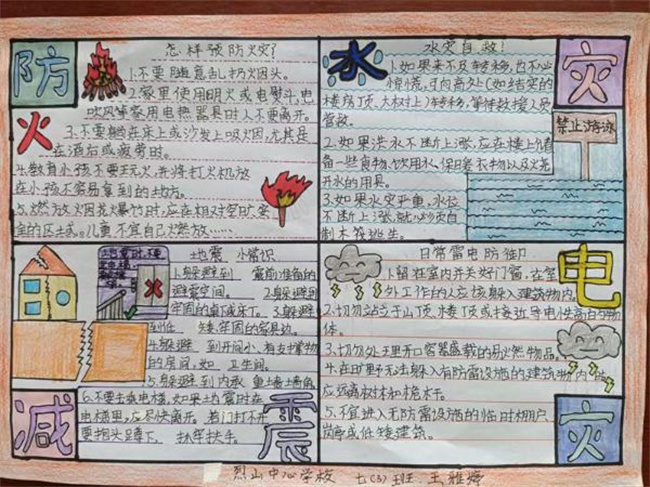 防
火
怎样预防火灾?
1.不要随意乱扔烟头。
2.家里使用明火或电熨斗,电
吹风等家用电热器具时人不要离开。
3.不要躺在床上或沙发上吸烟,尤其是
在酒后或疲劳时。
4.教育小孩不要玩火,并将打火机放
在小孩不容易拿到的地方。
5.燃放烟花爆竹时,应在相对空旷安
全的区域。儿童不宜自己燃放……
水
灾
水灾自救!
1.如果来不及转移,也不必
惊慌,可向高处(如结实的
楼房顶、大树上)转移,等候救援人员
营救。
2.如果洪水不断上涨,应在楼上储
备一些食物、饮用水、保暖衣物以及烧
开水的用具。
3.如果水灾严重,水位
不断上涨,就必须自
制木筏逃生。
禁止游泳
减
震
地震时,不要
地震 小常识
1.躲避到 震前准备的
避震空间。 2.躲避到
牢固的桌下或床下。 3.躲避
到低 矮、牢固的家具边。
4.躲避 到开间小、有支撑物
的房间,如 卫生间。
5.躲避 到内承 重墙墙角
6.不要去乘电梯,如果地震时在
电梯里,应尽快离开。若门打不开
要抱头蹲下。 抓牢扶手。
电
灾
日常雷电防御
1.留在室内并关好门窗,在室
外工作的人应该躲入建筑物内
2.切勿站立于山顶、楼顶或接近导电性高的物
体。
3.切勿处理开口容器盛载的易燃物品。
4.在旷野无法躲入有防雷设施的建筑物内时,
应远离树木和桅杆。
5.不宜进入无防雷设施的临时棚户、
岗亭或低矮建筑。
烈山中心学校 七(3)班 王雅婷